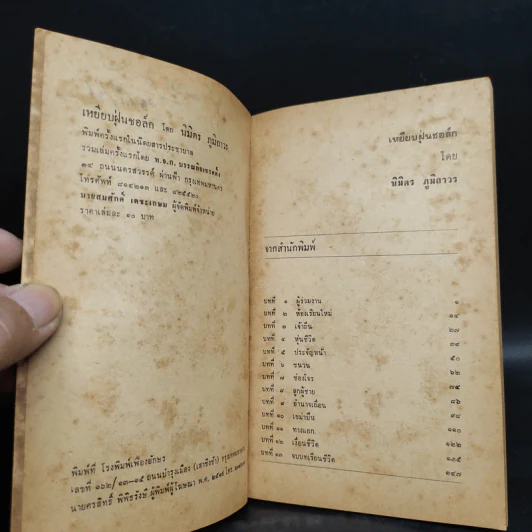 เหยียบฝุ่นชอล์ค โดย นิมิตร ภูมิถาวร
พิมพ์ครั้งแรกในนิตยสารประชาบาล
รวมเล่มครั้งแรกโดย ห.จ.ก. บรรณกิจเทรดดิ้ง
๓๔ ถนนนครสวรรค์ ผ่านฟ้า กรุงเทพมหานคร
โทรศัพท์ ๘๑๔๒๑๓ และ ๘๒๕๕๒๐
นายสมศักดิ์ เตชะเกษม ผู้จัดพิมพ์จำหน่าย
ราคาเล่มละ ๑๐ บาท
พิมพ์ที่ โรงพิมพ์เฟื่องอักษร
เลขที่ ๑๖๒/๑๓-๑๕ ถนนบำรุงเมือง (เสาชิงช้า)
ผู้พิมพ์ผู้โฆษณา พ.ศ.
เหยียบฝุ่นชอล์ก
โดย
นิมิตร ภูมิถาวร
จากสำนักพิมพ์
บทที่ ๑ ผู้ร่วมงาน ๑
บทที่ ๒ ห้องเรียนใหม่ ๑๔
บทที่ ๓ เจ้าถิ่น ๒๗
บทที่ ๔ หุ่นชีวิต ๓๙
บทที่ ๕ ประจัญหน้า ๕๐
บทที่ ๖ ชนวน ๖๒
บทที่ ๗ ซ่องโจร ๗๕
บทที่ ๘ ลูกผู้ชาย ๘๖
บทที่ ๙ อำนาจเถื่อน ๙๘
บทที่ ๑๐ เขม่าปืน ๑๑๐
บทที่ ๑๑ ทางแยก ๑๒๒
บทที่ ๑๒ เรือนชีวิต ๑๓๕
บทที่ ๑๓ จบบทเรียนชีวิต ๑๔๗